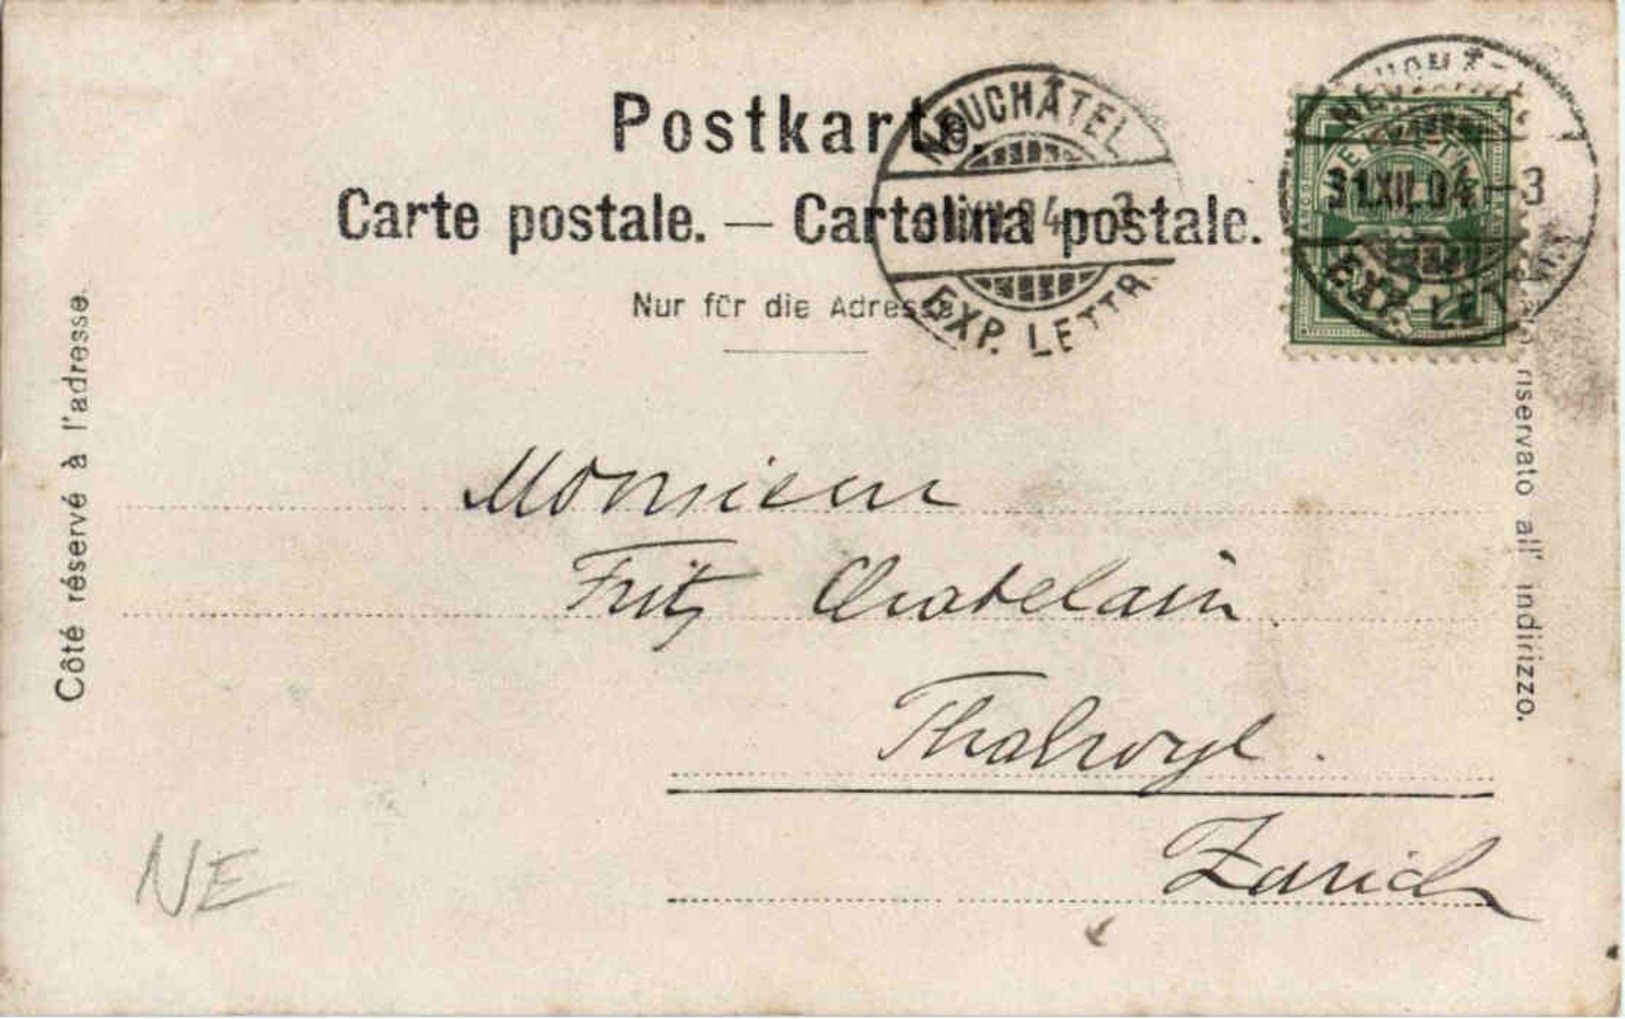 Postkarte.
Carte postale. — Cartolina postale.
Nur für die Adresse
Côté réservé à l'adresse.
riservato all' indirizzo.
NEUCHÂTEL
31.XII.04.-3
EXP. LETTR.
31.XII.04.-3
EXP. LETTR.
Monsieur
Fritz Chatelain
Thalwyl.
Zurich
NE